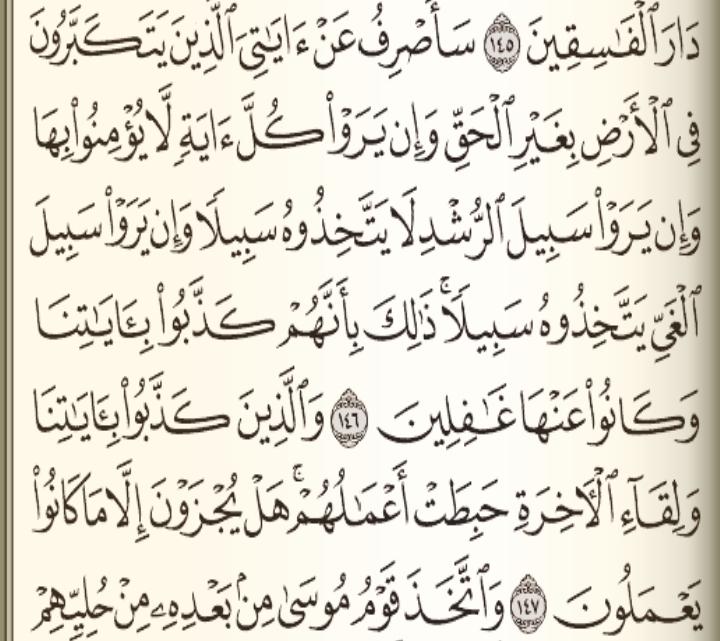 دَارَ ٱلْفَـٰسِقِينَ ١٤٥ سَأَصْرِفُ عَنْ ءَايَـٰتِىَ ٱلَّذِينَ يَتَكَبَّرُونَ
فِى ٱلْأَرْضِ بِغَيْرِ ٱلْحَقِّ وَإِن يَرَوْا۟ كُلَّ ءَايَةٍ لَّا يُؤْمِنُوا۟ بِهَا
وَإِن يَرَوْا۟ سَبِيلَ ٱلرُّشْدِ لَا يَتَّخِذُوهُ سَبِيلًا وَإِن يَرَوْا۟ سَبِيلَ
ٱلْغَىِّ يَتَّخِذُوهُ سَبِيلًا ۚ ذَٰلِكَ بِأَنَّهُمْ كَذَّبُوا۟ بِـَٔايَـٰتِنَا
وَكَانُوا۟ عَنْهَا غَـٰفِلِينَ ١٤٦ وَٱلَّذِينَ كَذَّبُوا۟ بِـَٔايَـٰتِنَا
وَلِقَآءِ ٱلْـَٔاخِرَةِ حَبِطَتْ أَعْمَـٰلُهُمْ ۚ هَلْ يُجْزَوْنَ إِلَّا مَا كَانُوا۟
يَعْمَلُونَ ١٤٧ وَٱتَّخَذَ قَوْمُ مُوسَىٰ مِنۢ بَعْدِهِۦ مِنْ حُلِيِّهِمْ